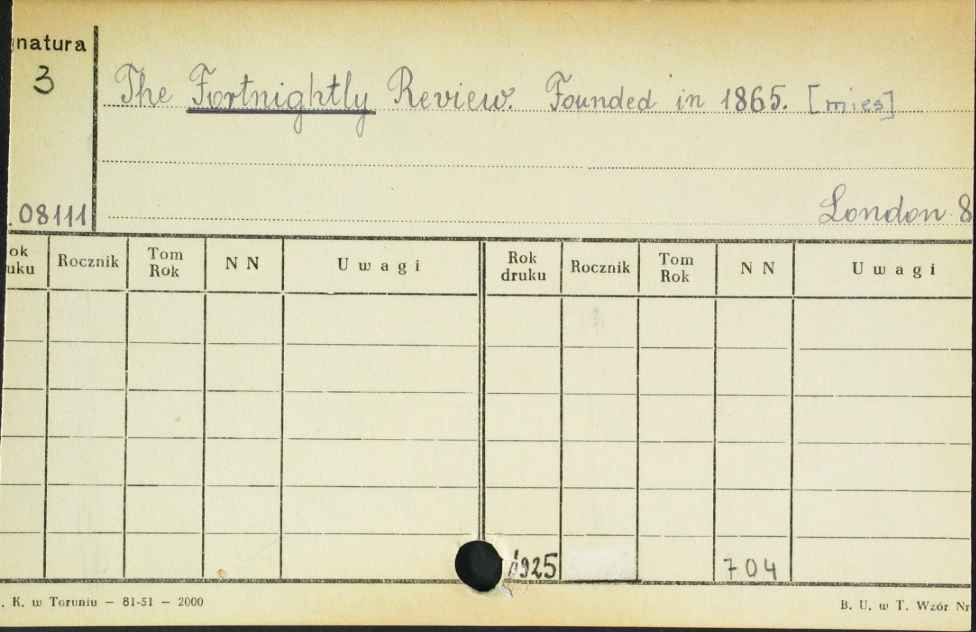 natura
3
The Fortnightly Review. Founded in 1865. [mies]
08111
London 8
ok uku Rocznik Tom Rok N N Uwagi Rok druku Rocznik Tom Rok N N Uwagi
1925 704
. K. w Toruniu — 81-51 — 2000
B. U. w T. Wzór Nr